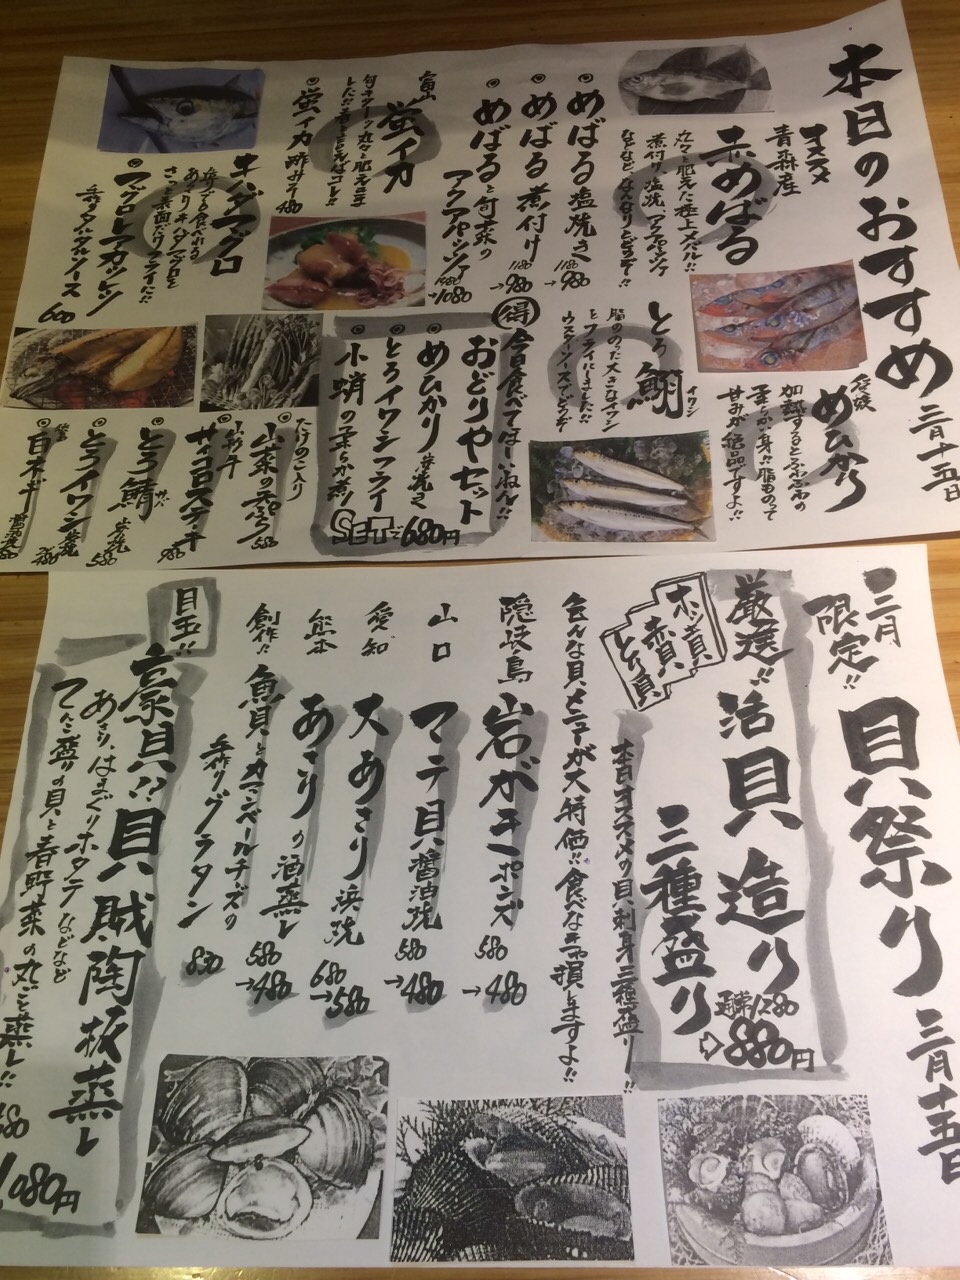 本日のおすすめ 三月十五日
オススメ
青森産
赤めばる
丸々と肥えた極上メバル!!
煮付け、塩焼、アクアパッツァ
などなど、なんなりとどうぞ!!
◎めばる塩焼き 1180→980
◎めばる煮付け 1180→980
◎めばると旬菜の
アクアパッツァ 1480→1080
富山
蛍イカ
◎蛍イカ酢みそ 480
キハダマグロ
さっと表面だけフライに!!
◎マグロレアカツレツ
タルタルソース 680
愛媛
めひかり
加熱するととふわふわの
柔らか身!!脂ものって
甘みが絶品ですよ!!
とろ鰯 イワシ
脂ののった大きなイワシ
をフライにしました!!
ウスターソースでどうぞ
得 今日食べてほしいねん!!
おどりやセット
◎めひかり塩焼き
◎とろイワシフライ
◎小蛸の柔らか煮
SETで680円
たけのこ入り
◎山菜の天ぷら 580
◎サイコロステーキ 980
◎とろ鯖塩焼 580
◎とろイワシ塩焼 480
三月
限定!!
貝祭り 三月十五日
厳選!! 活貝造り
三種盛り
通常1280
⇨880円
ホッキ貝
赤貝
とり貝
本日オススメの貝、刺身三種盛り!!
色んな貝メニューが大特価!!食べなきゃ損しますよ!!
隠岐島 岩がきポンズ 580→480
山口 マテ貝醤油焼 580→480
愛知 大あさり浜焼 680→580
熊本 あさりの酒蒸し 580→480
創作!! 魚貝とカマンベールチーズの
手作りグラタン 830
目玉!!
豪貝!?貝賊陶板蒸し
あさり、はまぐり、ホタテなどなど
てんこ盛りの貝と春野菜の丸ごと蒸し!!
1,080円